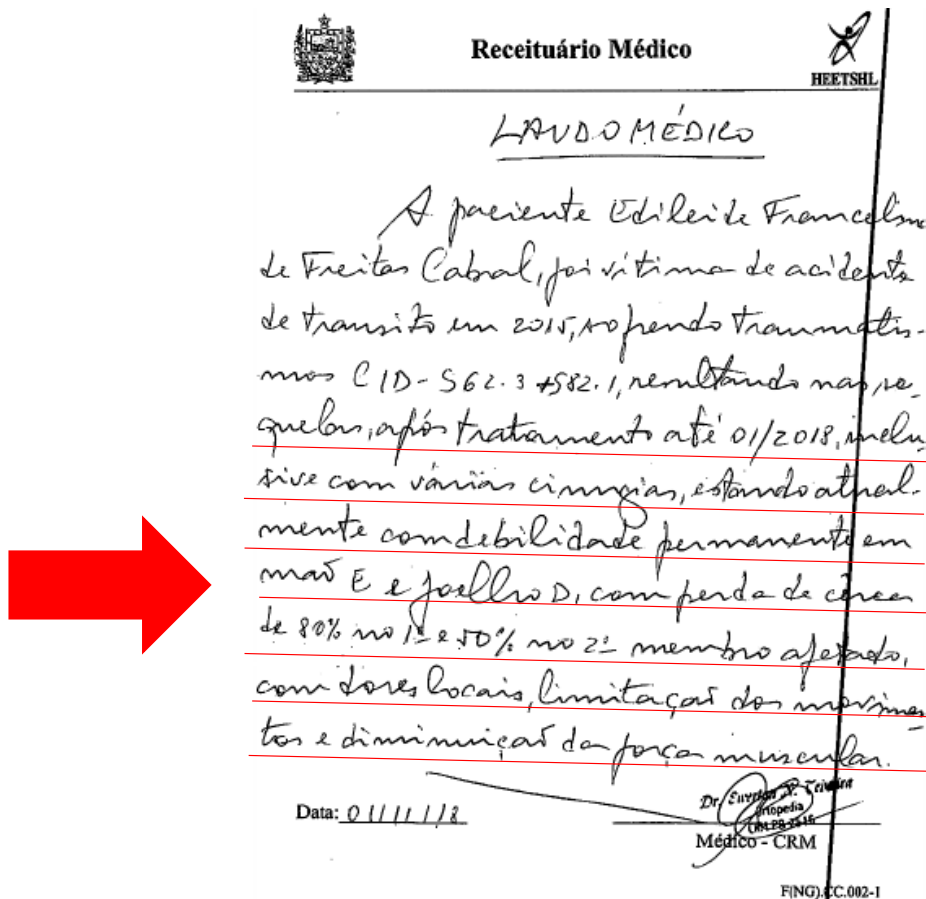 Receituário Médico
HEETSHL
LAUDO MÉDICO
A paciente Edileide Francelino
de Freitas Cabral, foi vítima de acidente
de transito em 2015, sofrendo traumatis-
mos CID-S62.3 + S82.1, resultando nas se-
quelas, após tratamento até 01/2018, inclu
sive com várias cirurgias, estando atual-
mente com debilidade permanente em
mão E e joelho D, com perda de cerca
de 80% no 1º e 50% no 2º membro afetado,
com dores locais, limitação dos movimen
tos e diminuição da força muscular.
Data: 01/11/18
Dr. Teixeira
Ortopedia
Médico - CRM
F(NG).CC.002-1